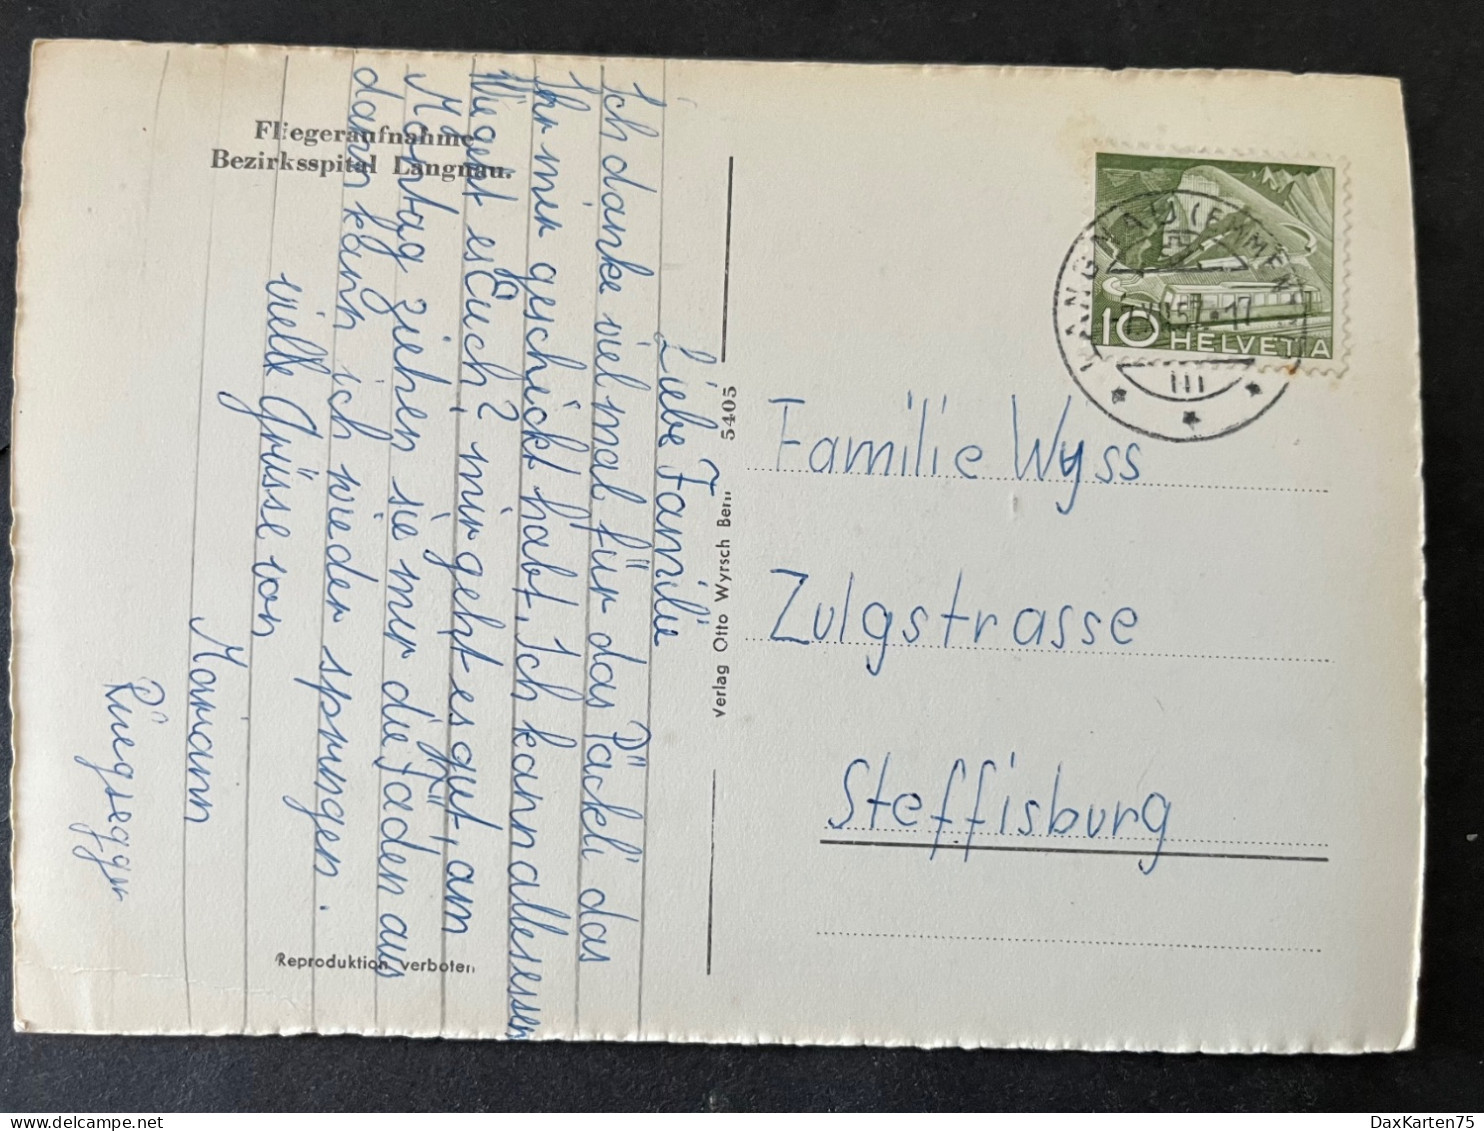 Fliegeraufnahme
Bezirksspital Langnau.
Liebe Familie
Ich danke vielmal für das Päckli das
Ihr mir geschickt habt. Ich kann alles essen
Wie geht es Euch? mir geht es gut, am
Montag ziehen sie mir die Fäden aus
dann kann ich wieder springen.
viele Grüsse von
Mariann
Rüegsegger
Reproduktion verboten
Verlag Otto Wyrsch Bern 5405
LANGNAU (EMMENT
57-17
III
10 HELVETIA
Familie Wyss
Zulgstrasse
Steffisburg
DaxKarten75